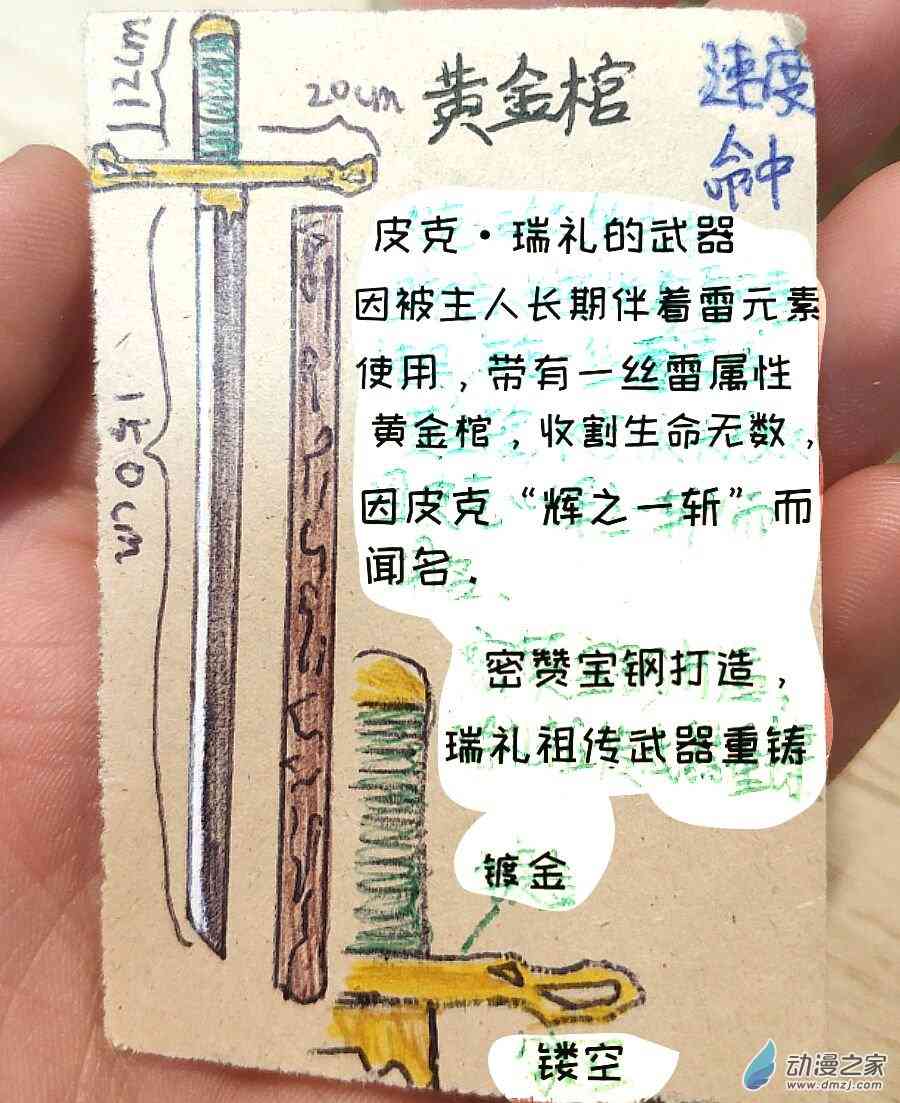 12cm
20cm
黄金棺
速度
命中
150cm
皮克·瑞礼的武器
因被主人长期伴着雷元素
使用，带有一丝雷属性
黄金棺，收割生命无数，
因皮克“辉之一斩”而
闻名.
密赞宝钢打造，
瑞礼祖传武器重铸
镀金
镂空
动漫之家
www.dmzj.com